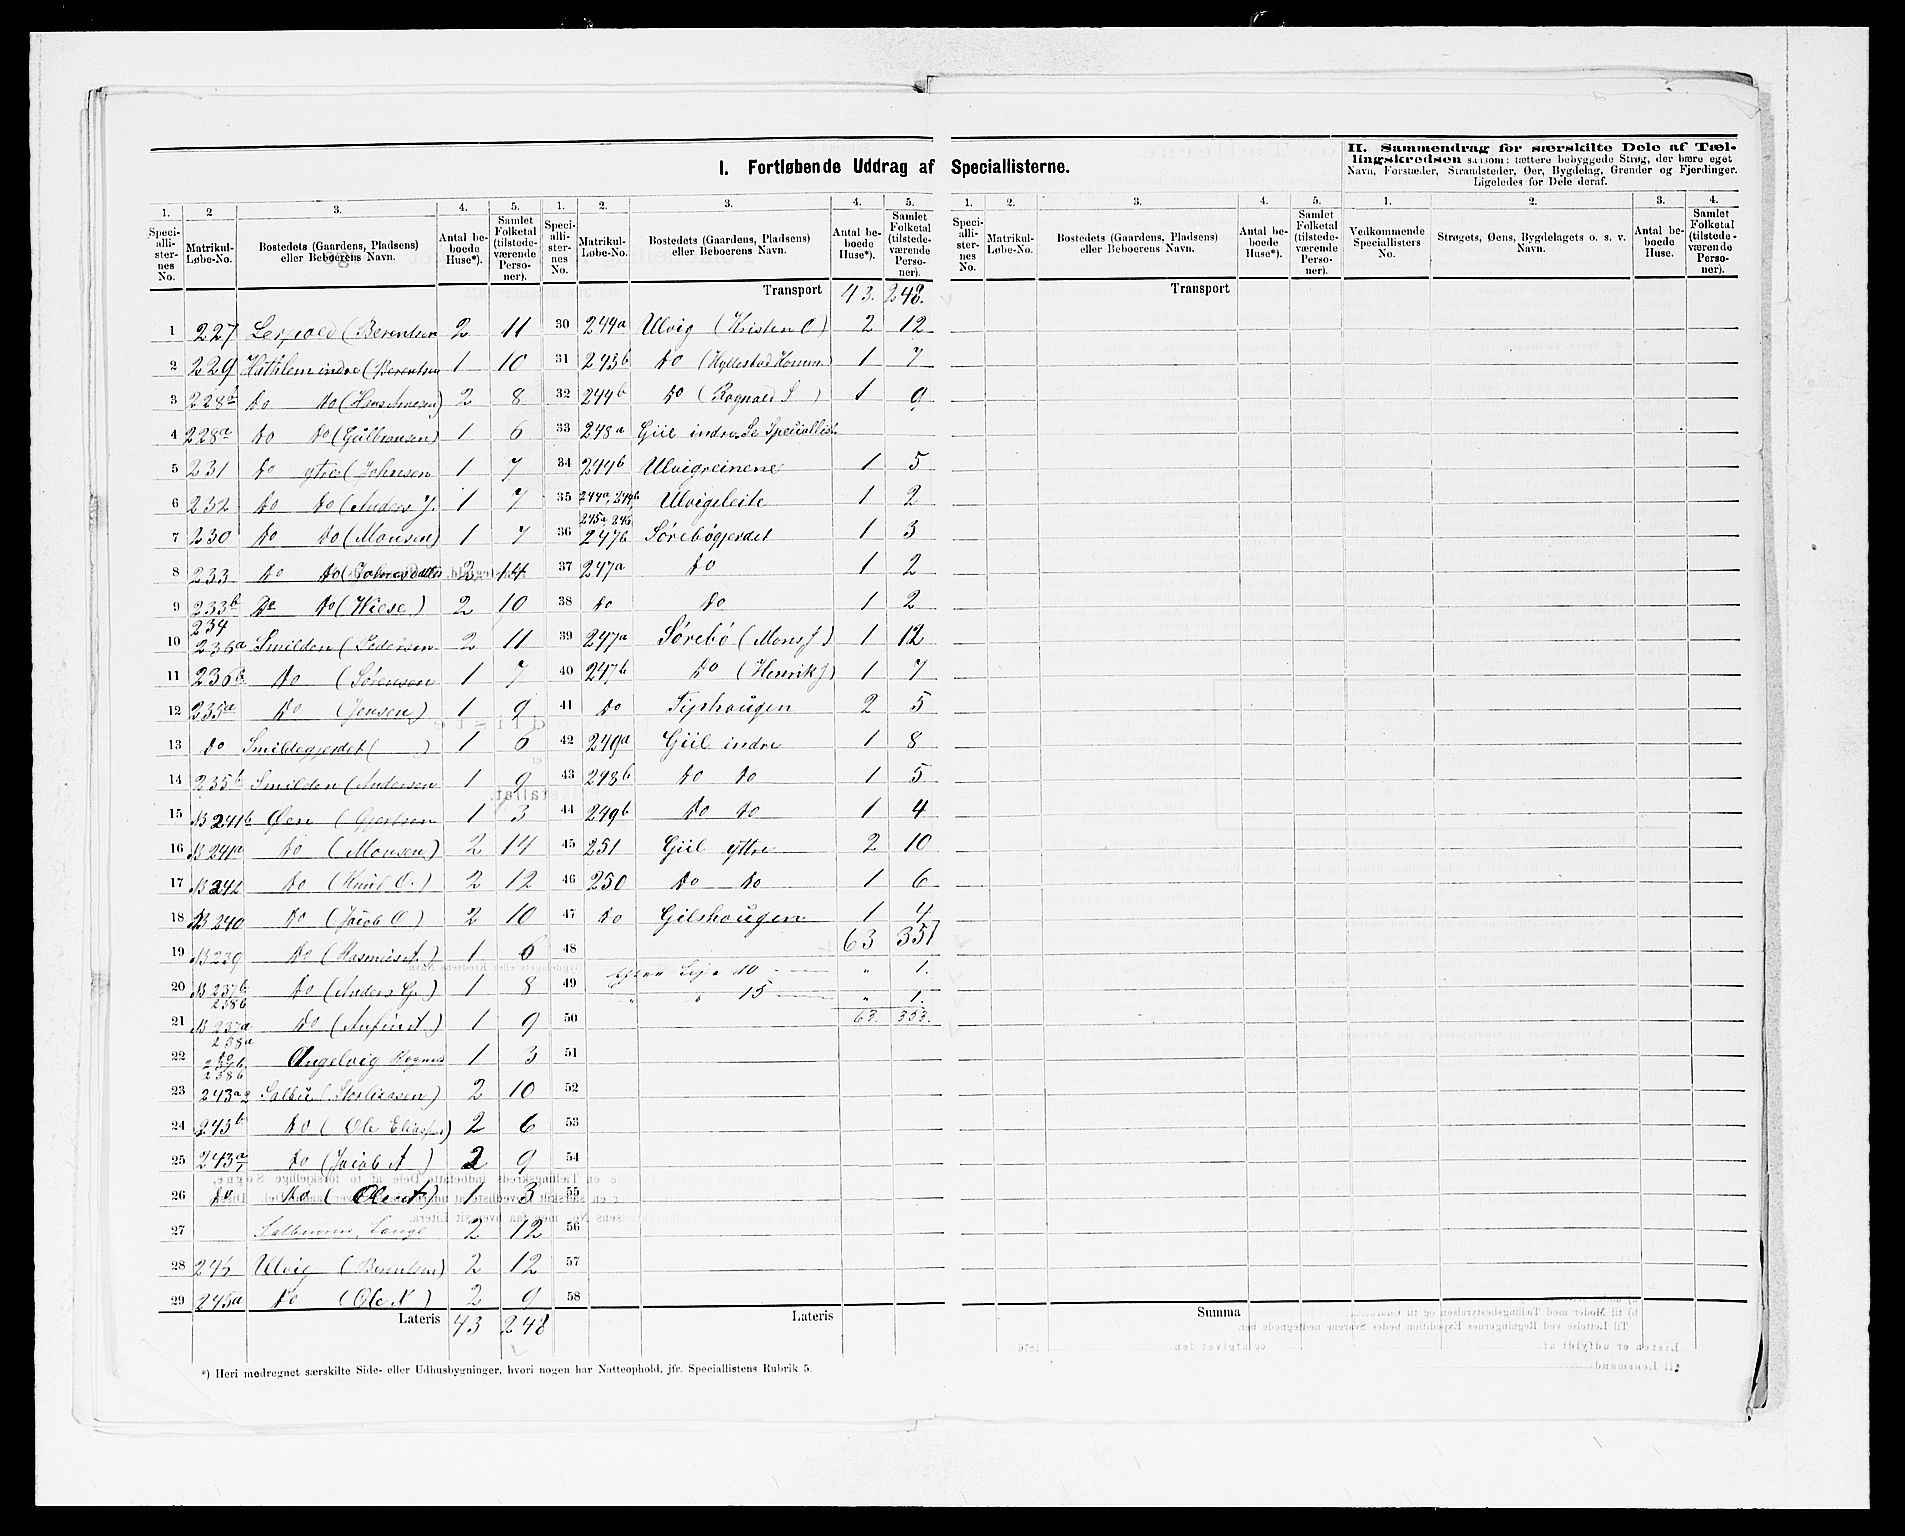 I. Fortløbende Uddrag af Speciallisterne.
II. Sammendrag for særskilte Dele af Tællingskredsen saasom: tættere bebyggede Strøg, der bære eget
Navn, Forstæder, Strandsteder, Øer, Bygdelag, Grender og Fjerdinger.
Ligeledes for Dele deraf.
1. 2 3. 4. 5. 1. 2. 3. 4. 5. 1. 2. 3. 4. 5. 1. 2. 3. 4.
Speciallisternes No. Matrikul-Løbe-No. Bostedets (Gaardens, Pladsens) eller Beboerens Navn. Antal beboede Huse*). Samlet Folketal (tilstedeværende Personer).
Speciallisternes No. Matrikul-Løbe-No. Bostedets (Gaardens, Pladsens) eller Beboerens Navn. Antal beboede Huse*). Samlet Folketal (tilstedeværende Personer).
Speciallisternes No. Matrikul-Løbe-No. Bostedets (Gaardens, Pladsens) eller Beboerens Navn. Antal beboede Huse*). Samlet Folketal (tilstedeværende Personer).
Vedkommende Speciallisters No. Strøgets, Øens, Bygdelagets o. s. v. Navn. Antal beboede Huse. Samlet Folketal (tilstedeværende Personer).
1 227 (Berentsen 2 11
2 229 indre (Berentsen 1 10
3 228b do do (Hans 2 8
4 228a do do (Gulbransen) 1 6
5 231 do ytre (Johnsen 1 7
6 232 do do (Anders J. 1 7
7 230 do do (Monsen) 1 7
8 233 do do 2 14
9 233b do do (Wiese) 2 10
234
10 236a Smilden (Pedersen 2 11
11 236b do (Sørensen 1 7
12 235a do (Jensen) 1 9
13 do Smildegjerdet ( ) 1 6
14 235b Smilden (Andersen 1 9
15 NB 241b Øen (Gjertsen 1 3
16 NB 241a do (Monsen) 2 14
17 NB 242 do (Knut O.) 2 12
18 NB 240 do (Jacob O) 2 10
19 NB 239 do (Rasmus A. 1 6
20 NB 237b 238b do (Anders G.) 1 8
21 NB 237a 238a do (Anfin A.) 1 9
22 do 237b 238b Angelvig 1 3
23 243a2 Salbu ( 2 10
24 243b do (Ole Eliassen) 2 6
25 243a1 do (Jacob A ) 2 9
26 do do (Ole A) 1 3
27 2 12
28 245 Ulvig (Berentsen) 2 12
29 245a do (Ole N ) 2 9
Lateris 43 248
Transport 43. 248.
30 244a Ulvig (Kristen O) 2 12
31 243b do (Hyllestad Komm.) 1 7
32 244b do (Rognald S ) 1 9
33 248a Giil indre. Se Speciallist.
34 244b Ulvigreinene 1 5
35 244a, 244b Ulvigsleite 1 2
245a 245
36 247b Sørebøgjerdet 1 3
37 247a do 1 2
38 do do 1 2
39 247a Sørebø (Mons J) 1 12
40 247b do (Henrik J) 1 7
41 do 2 5
42 249a Giil indre 1 8
43 248b do do 1 5
44 249b do do 1 4
45 251 Giil yttre 2 10
46 250 do do 1 6
47 do Gilshougen 1 4
48 63 351
49 10 " 1.
" " 15 " 1.
50 63. 353.
51
52
53
54
55
56
57
58
Lateris
Transport
Summa
*) Heri medregnet særskilte Side- eller Udhusbygninger, hvori nogen har Natteophold, jfr. Speciallistens Rubrik 5.